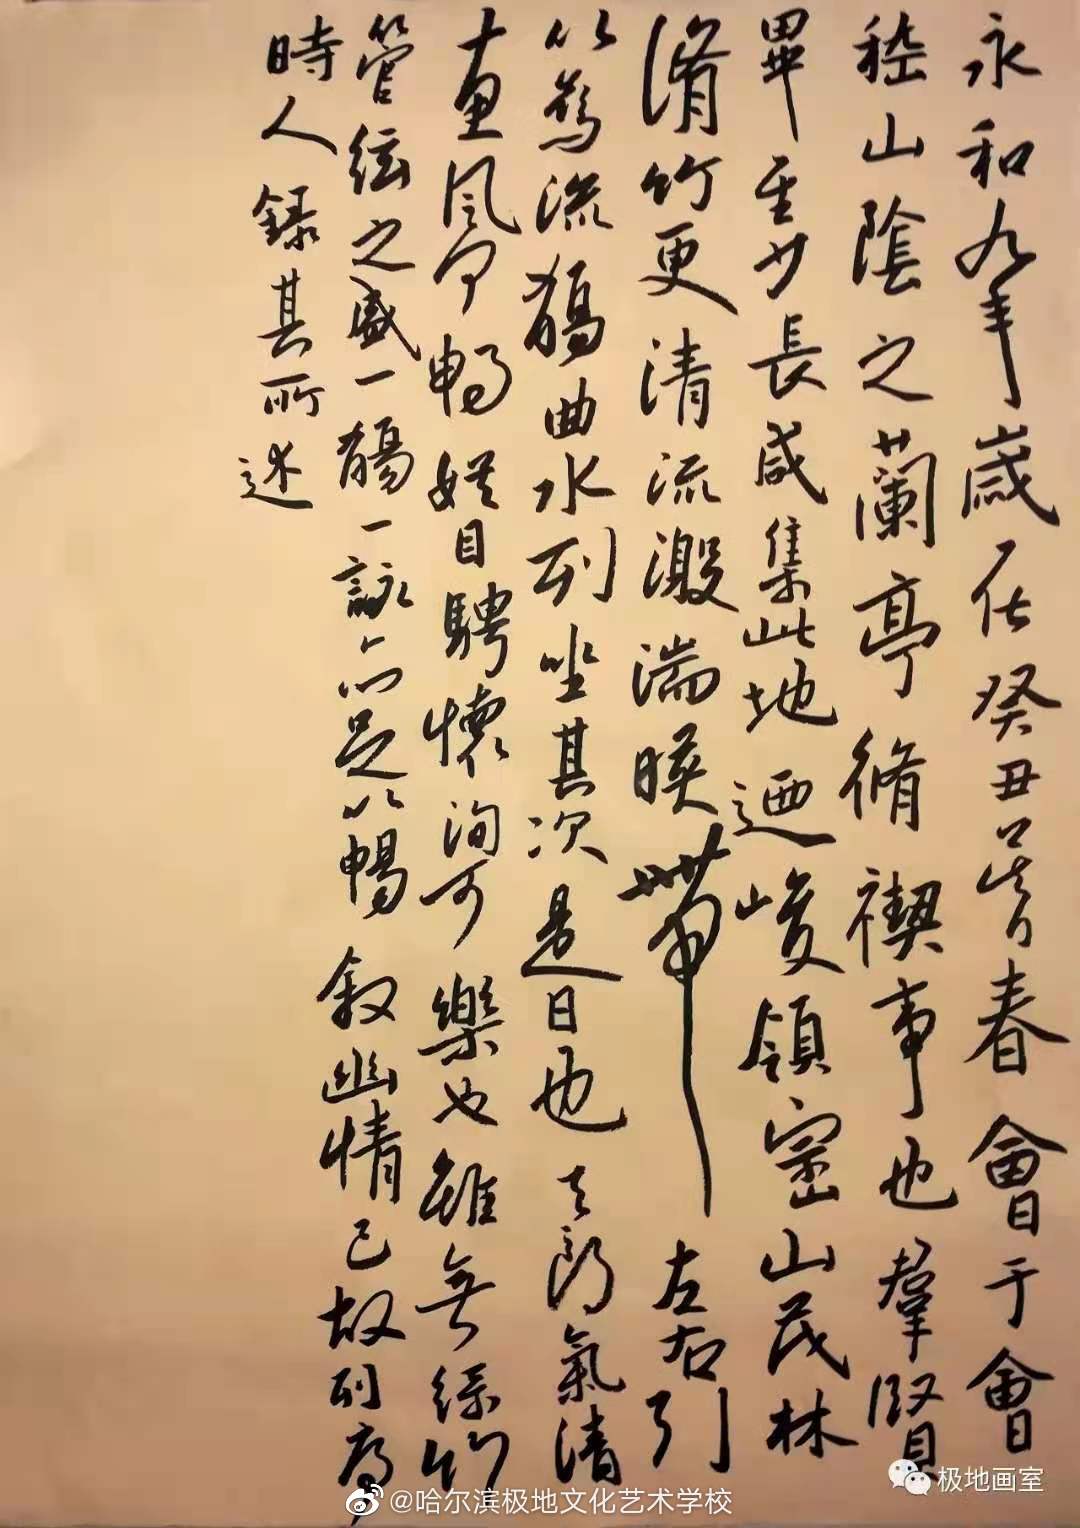 永和九年歲在癸丑暮春會于會
稽山陰之蘭亭脩禊事也羣賢
畢至少長咸集此地迺峻領崇山茂林
脩竹更清流激湍暎帶左右引
以為流觴曲水列坐其次是日也天朗氣清
惠風和暢娛目騁懷洵可樂也雖無絲竹
管絃之盛一觴一詠亦足以暢敘幽情已故列序
時人錄其所述
极地画室
@哈尔滨极地文化艺术学校